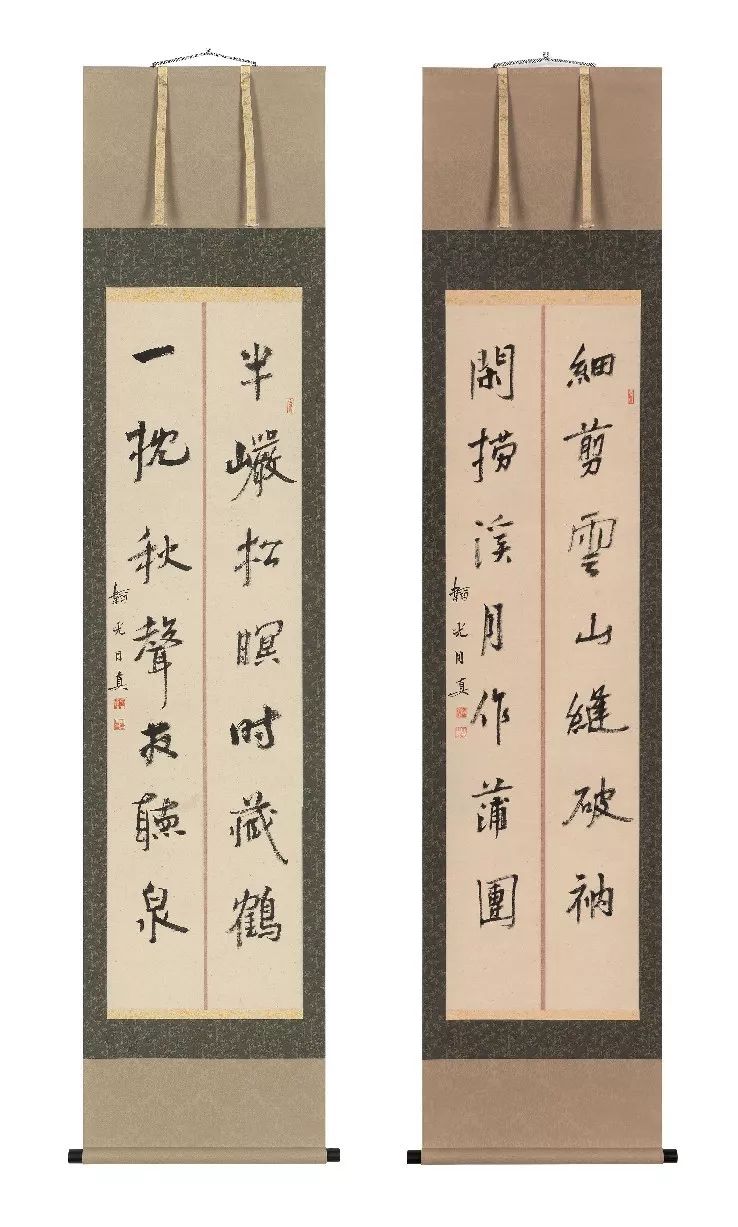 半巗松暝时藏鶴
一枕秋聲夜聽泉
韜光月真
細剪雲山縫破衲
閑撈溪月作蒲團
韜光月真